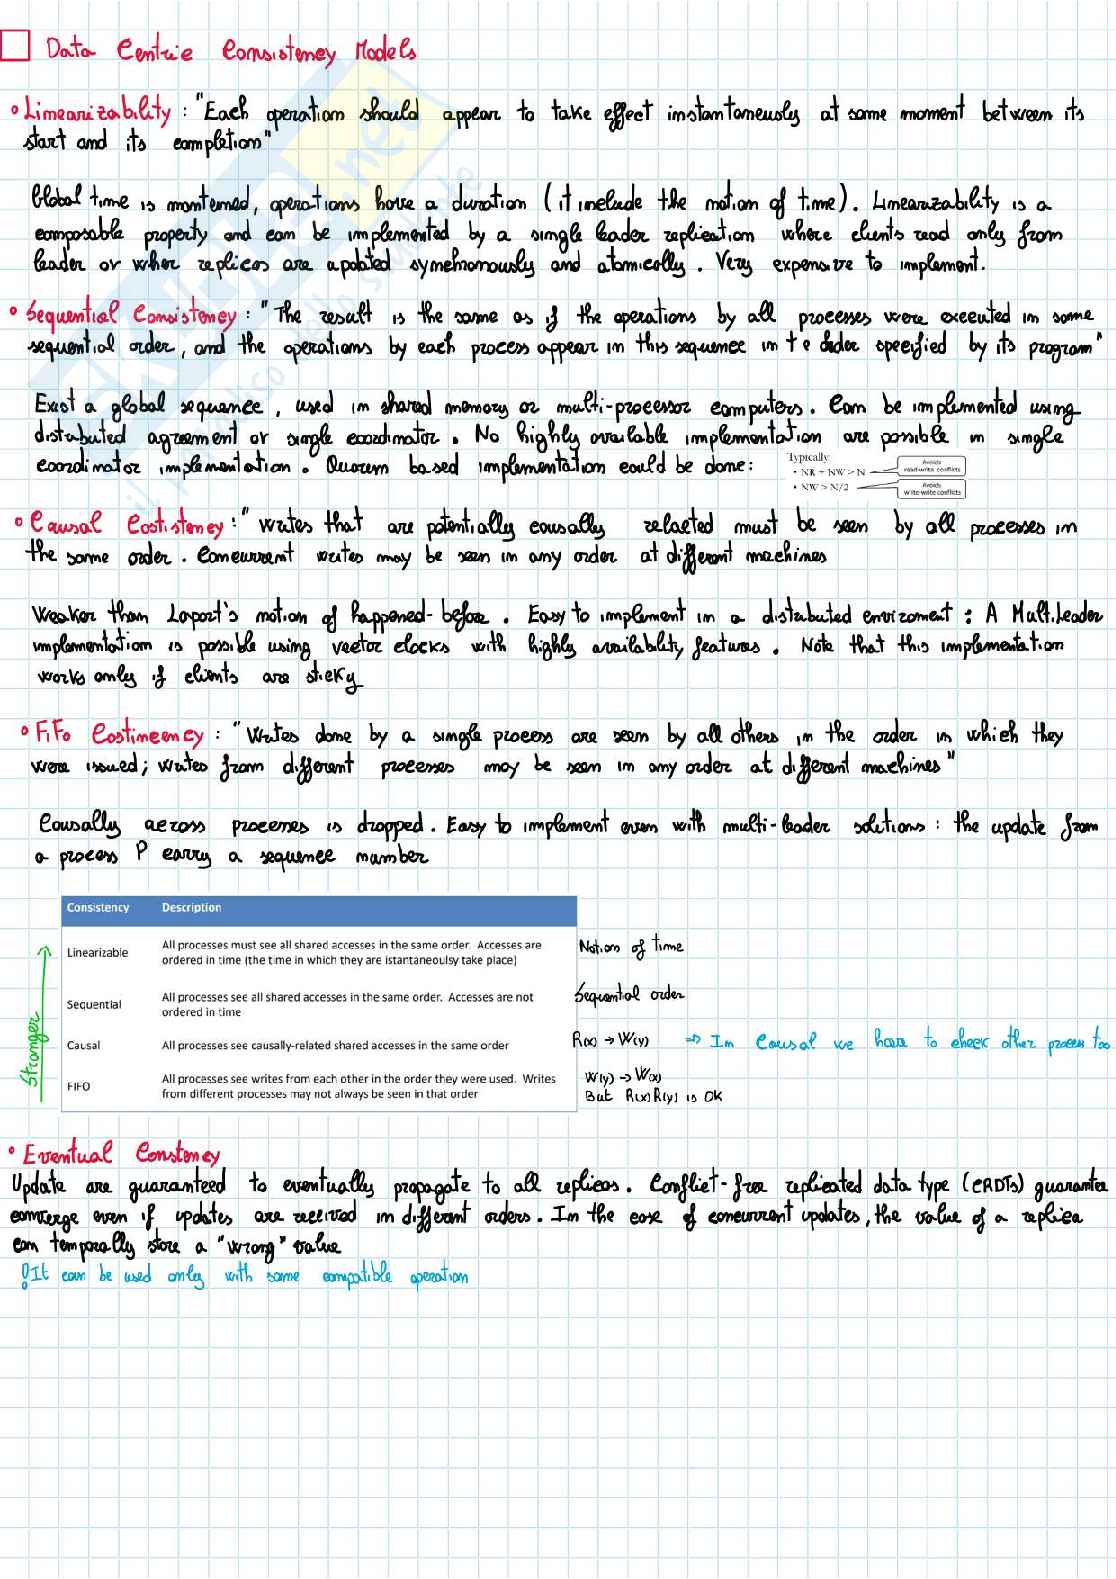 Data Centric Consistency Models
• Linearizability : "Each operation should appear to take effect instantaneusly at some moment between its
start and its completion"
Global time is mantened, operations have a duration (it include the notion of time). Linearizability is a
composable property and can be implemented by a single leader replication where clients read only from
leader or when replicas are updated synchronously and atomically. Very expensive to implement.
• Sequential Consistency : "The result is the same as if the operations by all processes were executed in some
sequential order, and the operations by each process appear in this sequence in the order specified by its program"
Exist a global sequence, used in shared memory or multi-processor computers. Can be implemented using
distributed agreement or single coordinator. No highly available implementation are possible in single
coordinator implementation. Quorum based implementation could be done:
Typically:
• NR + NW > N
Avoids
read-write conflicts
• NW > N/2
Avoids
write-write conflicts
• Causal Costistency : "Writes that are potentially causally relacted must be seen by all processes in
the same order. Concurrent writes may be seen in any order at different machines
Weaker than Laport's notion of happened-before. Easy to implement in a distributed enviroment : A Multileader
implementation is possible using vector clocks with highly availability features. Note that this implementation
works only if clients are sticky
• FiFo Costincency : "Writes done by a single process are seen by all others in the order in which they
were issued; writes from different processes may be seen in any order at different machines"
Causally across processes is dropped. Easy to implement even with multi-leader solutions : the update from
a process P carry a sequence number
Consistency Description
Linearizable All processes must see all shared accesses in the same order. Accesses are
ordered in time (the time in which they are istantaneoulsy take place)
Notion of time
Sequential All processes see all shared accesses in the same order. Accesses are not
ordered in time
Sequential order
Causal All processes see causally-related shared accesses in the same order
R(x) → W(y) ⇒ In Causal we have to check other process too
FIFO All processes see writes from each other in the order they were used. Writes
from different processes may not always be seen in that order
W(y) → W(x)
But R(x) R(y) is OK
Stronger
• Eventual Constency
Update are guaranteed to eventually propagate to all replicas. Conflict-free replicated data type (CRDTs) guarantee
converge even if updates are received in different orders. In the case of concurrent updates, the value of a replica
can temporally store a "wrong" value
!It can be used only with some compatible operation